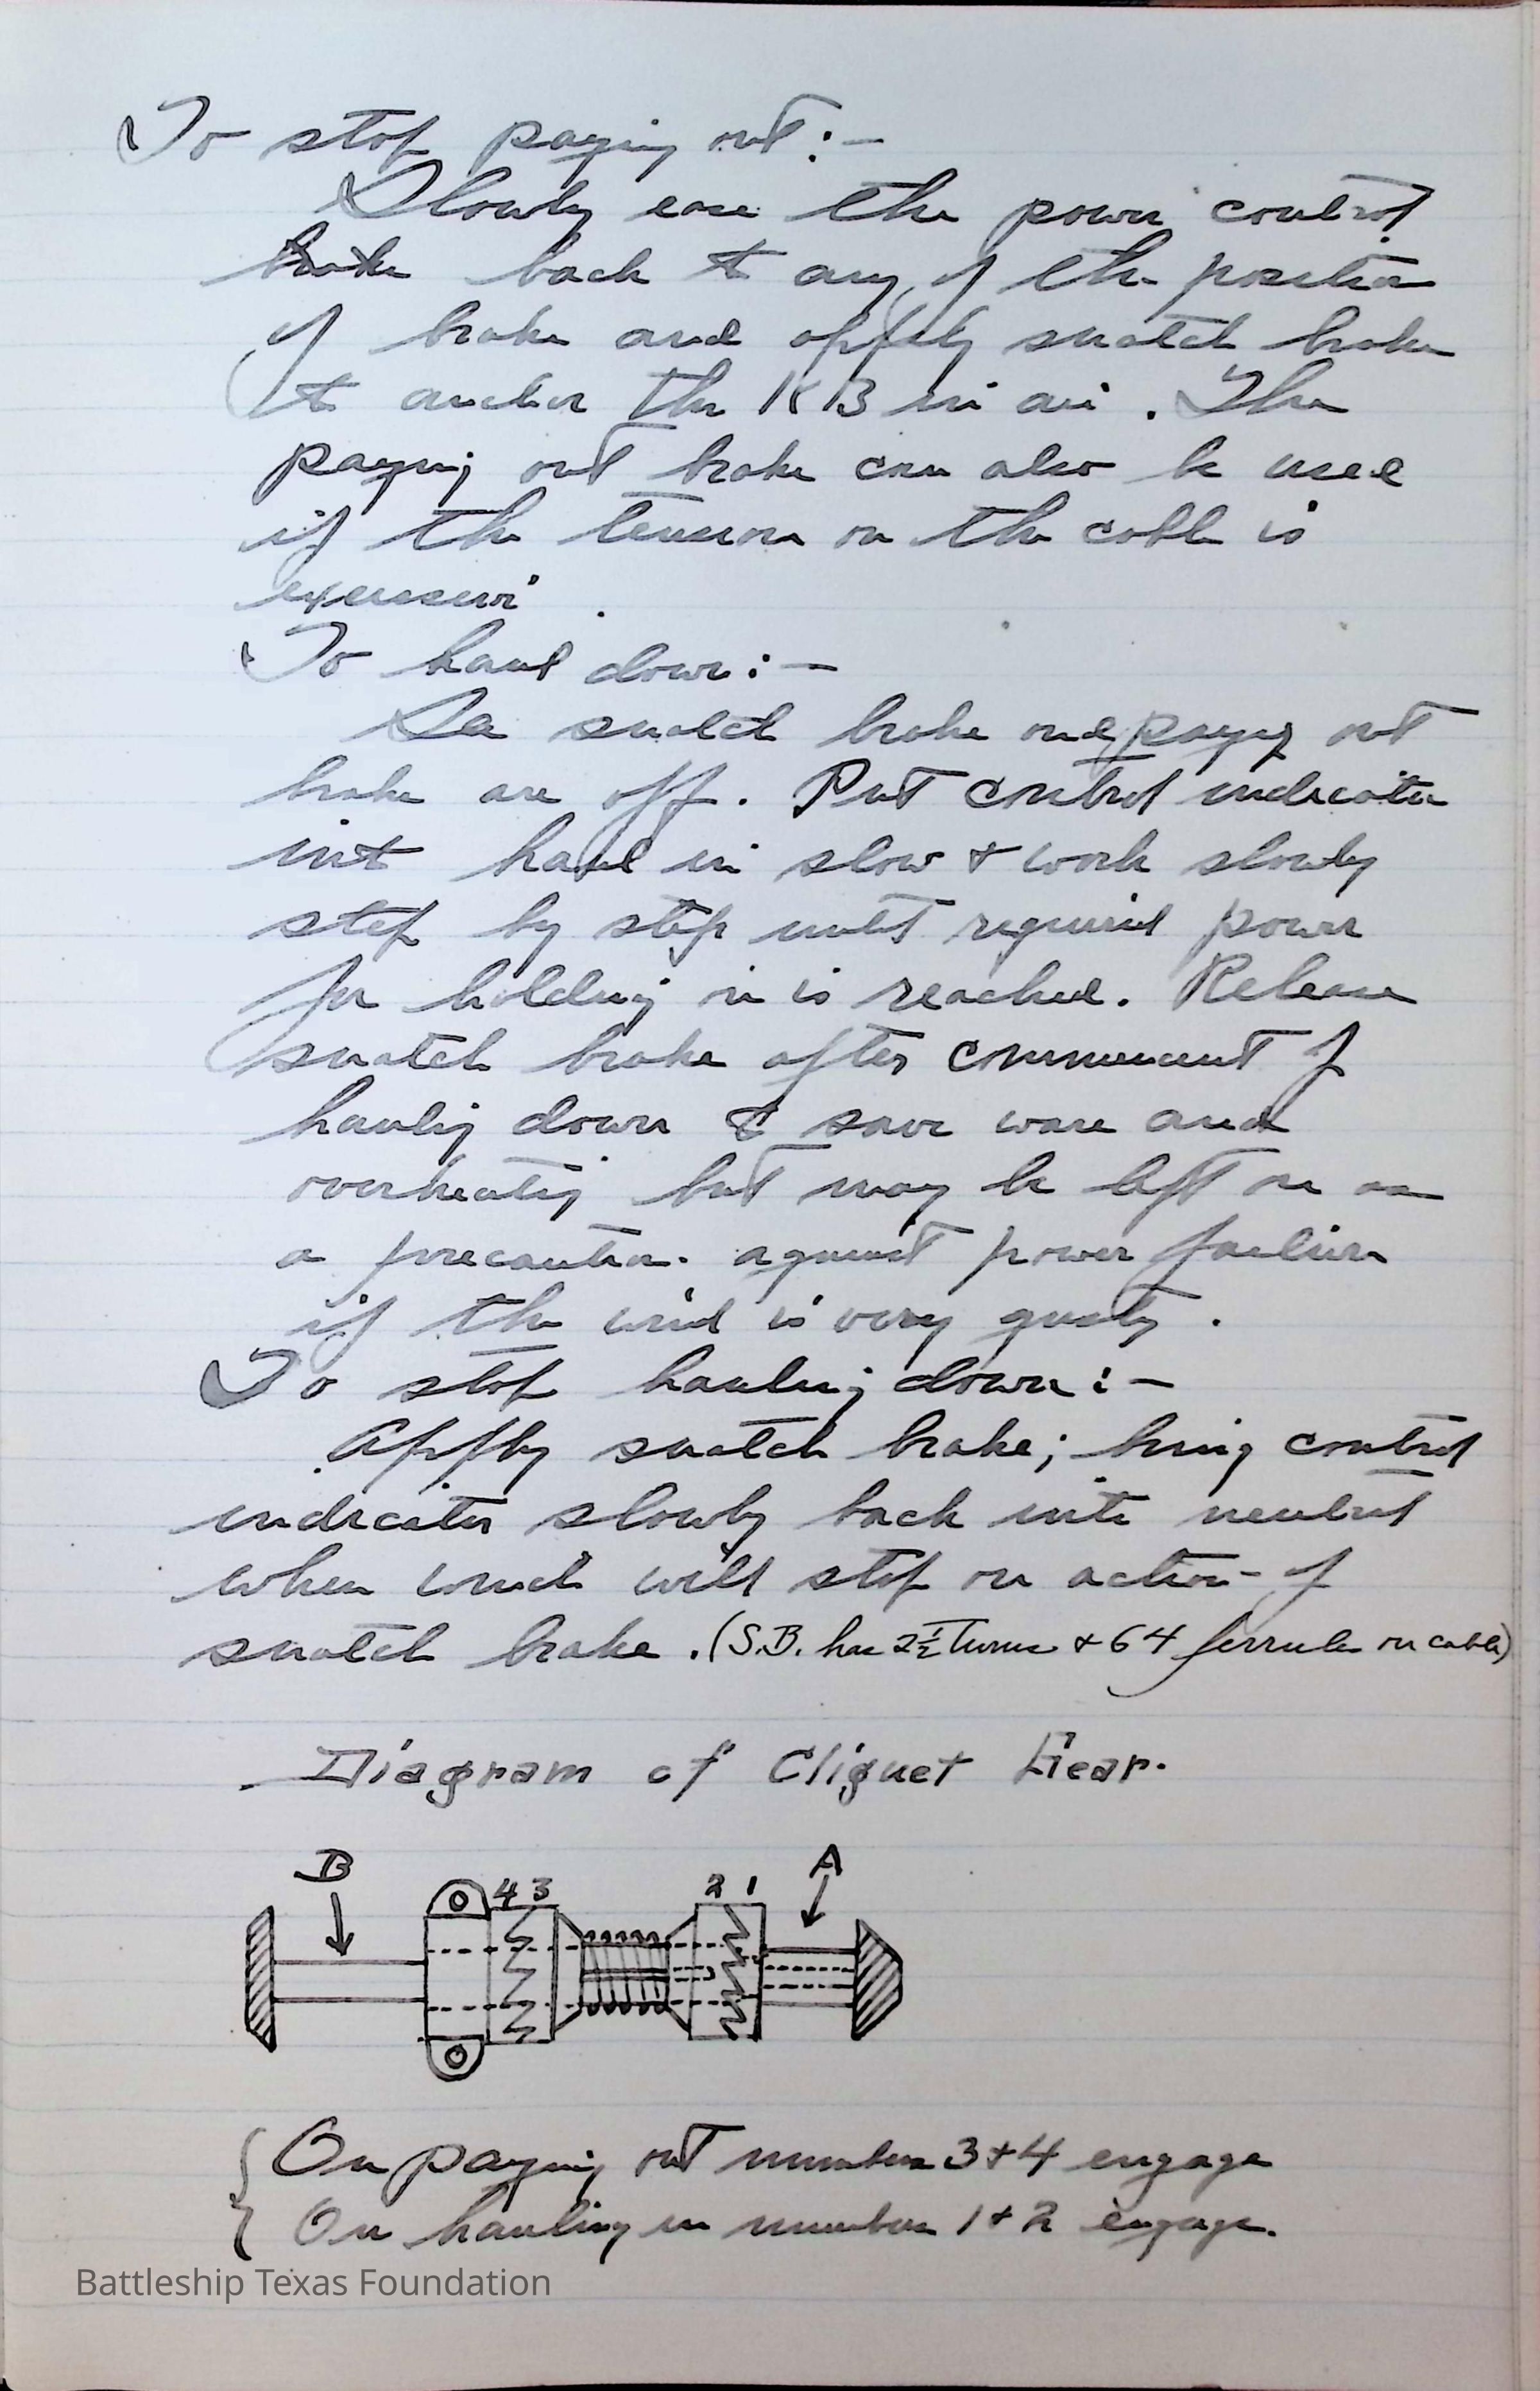 To stop paying out:-
Slowly ease the power control
brake back to any of the position
of brake and apply snatch brake
to anchor the KB in air. The
paying out brake can also be used
if the tension on the cable is
excessive.
To haul down:-
See snatch brake and paying out
brake are off. Put control indicator
into haul in slow & work slowly
step by step until required power
for holding in is reached. Release
snatch brake after commencement of
hauling down to save ware and
overheating but may be left on as
a precaution against power failure
if the wind is very gusty.
To stop hauling down:-
Apply snatch brake; bring control
indicator slowly back into neutral
when winch will stop on action of
snatch brake. (S.B. has 2½ turns & 64 ferrules on cable)
Diagram of Cliquet Gear.
B 4 3 2 1 A
On paying out number 3 & 4 engage
On hauling in number 1 & 2 engage.
Battleship Texas Foundation